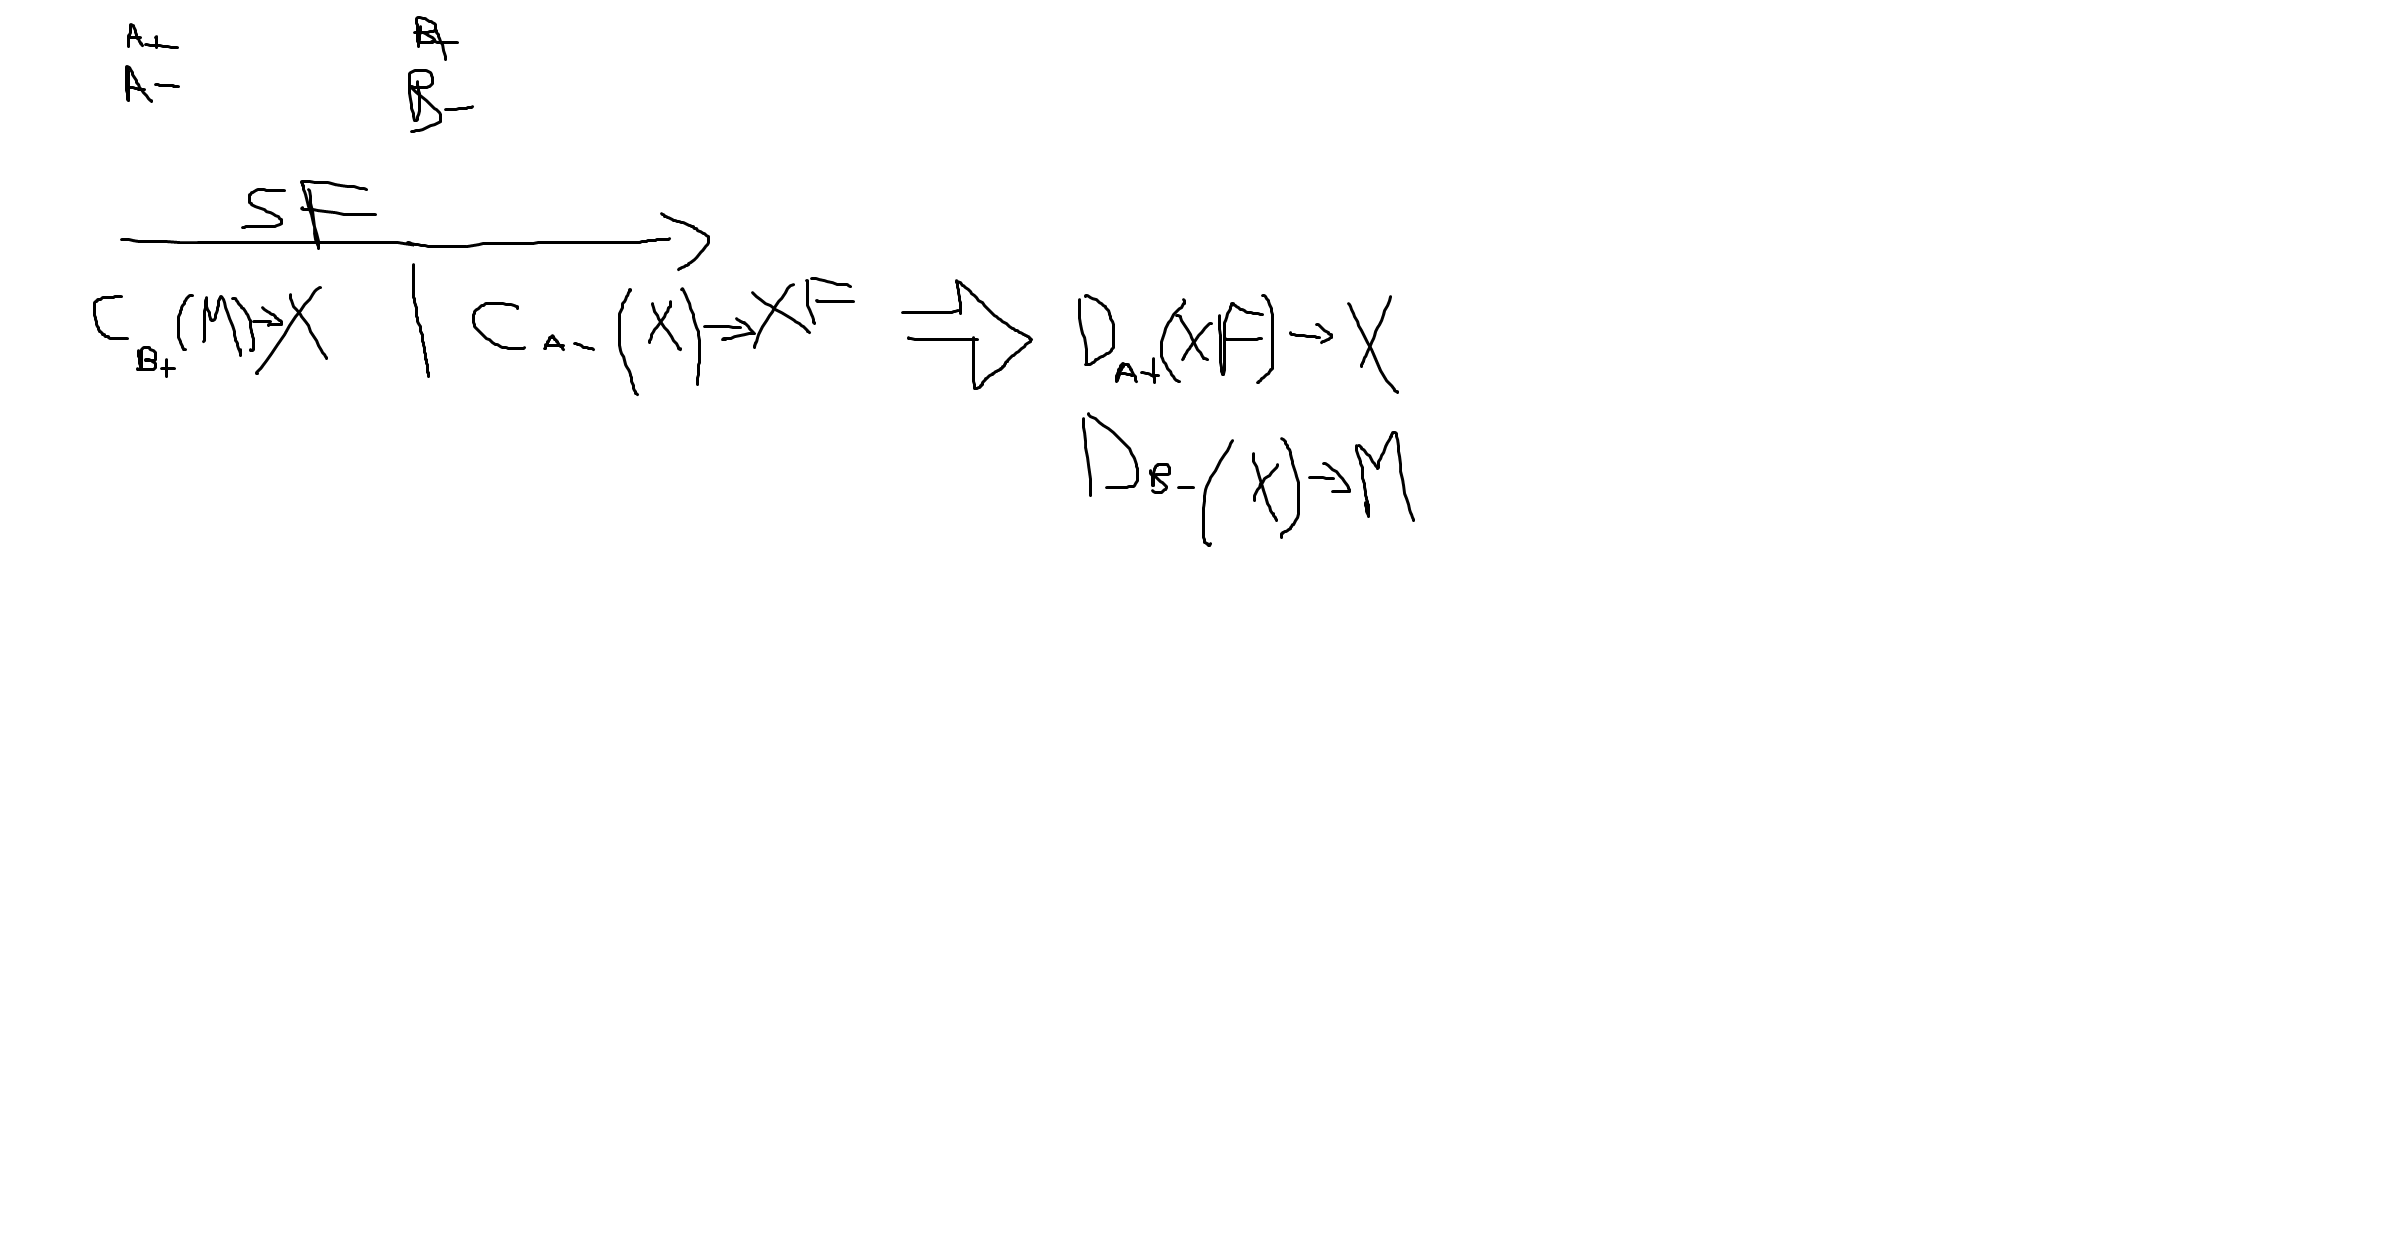 A+ B+
A- B-
SF
C B+ (M) → X | C A- (X) → XF ⇒ D A+ (XF) → X
D B- (X) → M